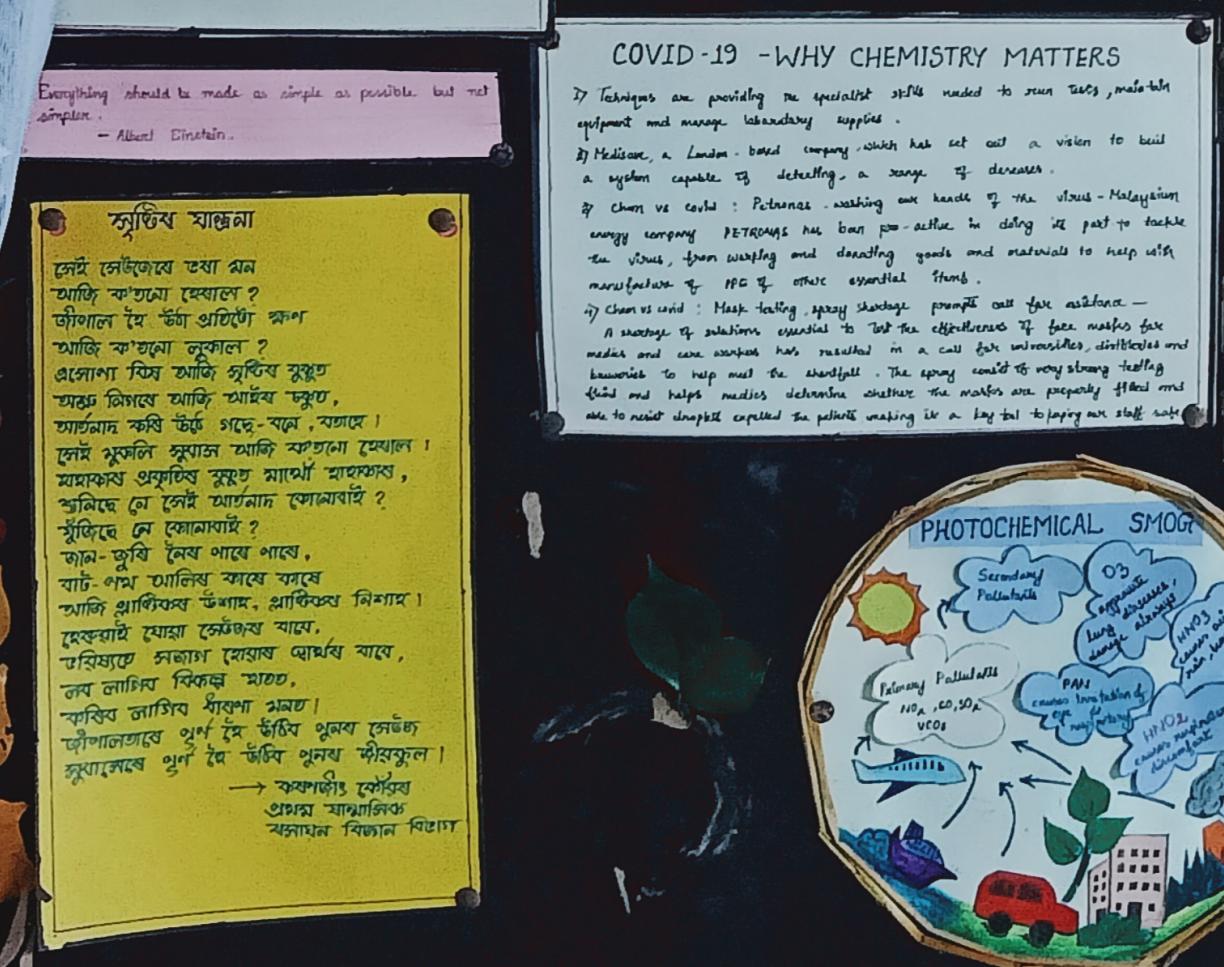 Everything should be made as simple as possible but not
simpler.
- Albert Einstein.
সৃষ্টিৰ যান্ত্ৰনা
সেই সেউজেৰে ভৰা মন
আজি ক'তনো হেৰাল ?
জীপাল হৈ উঠা প্ৰতিটো ক্ষণ
আজি ক'তনো লুকাল ?
এসোপা বিষ আজি সৃষ্টিৰ বুকুত
অশ্ৰু নিগৰে আজি আইৰ চকুত,
আৰ্তনাদ কৰি উঠে গছে-বনে, বতাহে ।
সেই মুকলি সুবাস আজি ক'তনো হেৰাল ।
হাহাকাৰ প্ৰকৃতিৰ বুকুত মাথোঁ হাহাকাৰ,
শুনিছে নে সেই আৰ্তনাদ কোনোবাই ?
খুঁজিছে নে কোনোবাই ?
জান-জুৰি নৈৰ পাৰে পাৰে,
বাট-পথ আলিৰ কাষে কাষে
আজি প্লাষ্টিকৰ উশাহ, প্লাষ্টিকৰ নিশাহ ।
হেৰুৱাই যোৱা সেউজৰ বাবে,
ভৱিষ্যতে সজাগ হোৱাৰ স্বাৰ্থৰ বাবে,
লব লাগিব বিকল্প হাতত,
কৰিব লাগিব ধাৰণা মনত ।
জীপালতাৰে পূৰ্ণ হৈ উঠিব পুনৰ সেউজ
সুবাসেৰে পূৰ্ণ হৈ উঠিব পুনৰ জীৱকুল ।
→ কৌৱৰ
প্ৰথম ষান্মাসিক
ৰসায়ন বিজ্ঞান বিভাগ
COVID-19 -WHY CHEMISTRY MATTERS
1) Techniques are providing the specialist skills needed to run tests, maintain
equipment and manage labaratary supplies.
2) Medisave, a London-based company, which has set out a vision to buil
a system capable of detecting, a range of deseases.
3) Chem vs covid : Petronas washing our hands of the virus - Malaysium
energy company PETRONAS has been pro-active in doing its part to tackle
the virus, from and donating goods and materials to help with
manufacture of PPE of other essential items.
4) Chem vs covid : Mask testing, spray shortage prompts call for asistance —
A shortage of solutions essential to test the effectiveness of face masks for
medics and care workers has resulted in a call for universities, and
to help meet the shortfall. The spray consist of very strong testing
fluid and helps medics determine whether the masks are properly fitted and
able to resist droplets expelled the patients making it a key tool to our staff safe
PHOTOCHEMICAL SMOG
Secondary
Pollutants
O3
lung diseases,
damage airways
HNO3
causes
PAN
causes irritation of
eye &
respiratory
HNO2
causes
discomfort
Primary Pollutants
NOx, CO, SOx
VCOs